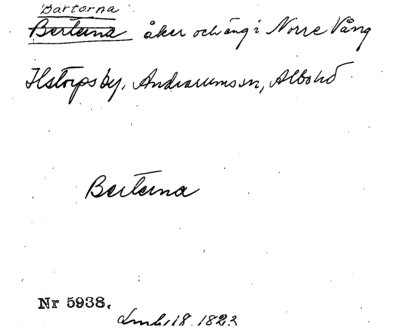 Bartorna
Berterna åker och äng i Norre Vång
Ilstorps by, Andrarums sn, Albo hd
Berterna
Nr 5938.
18 1823